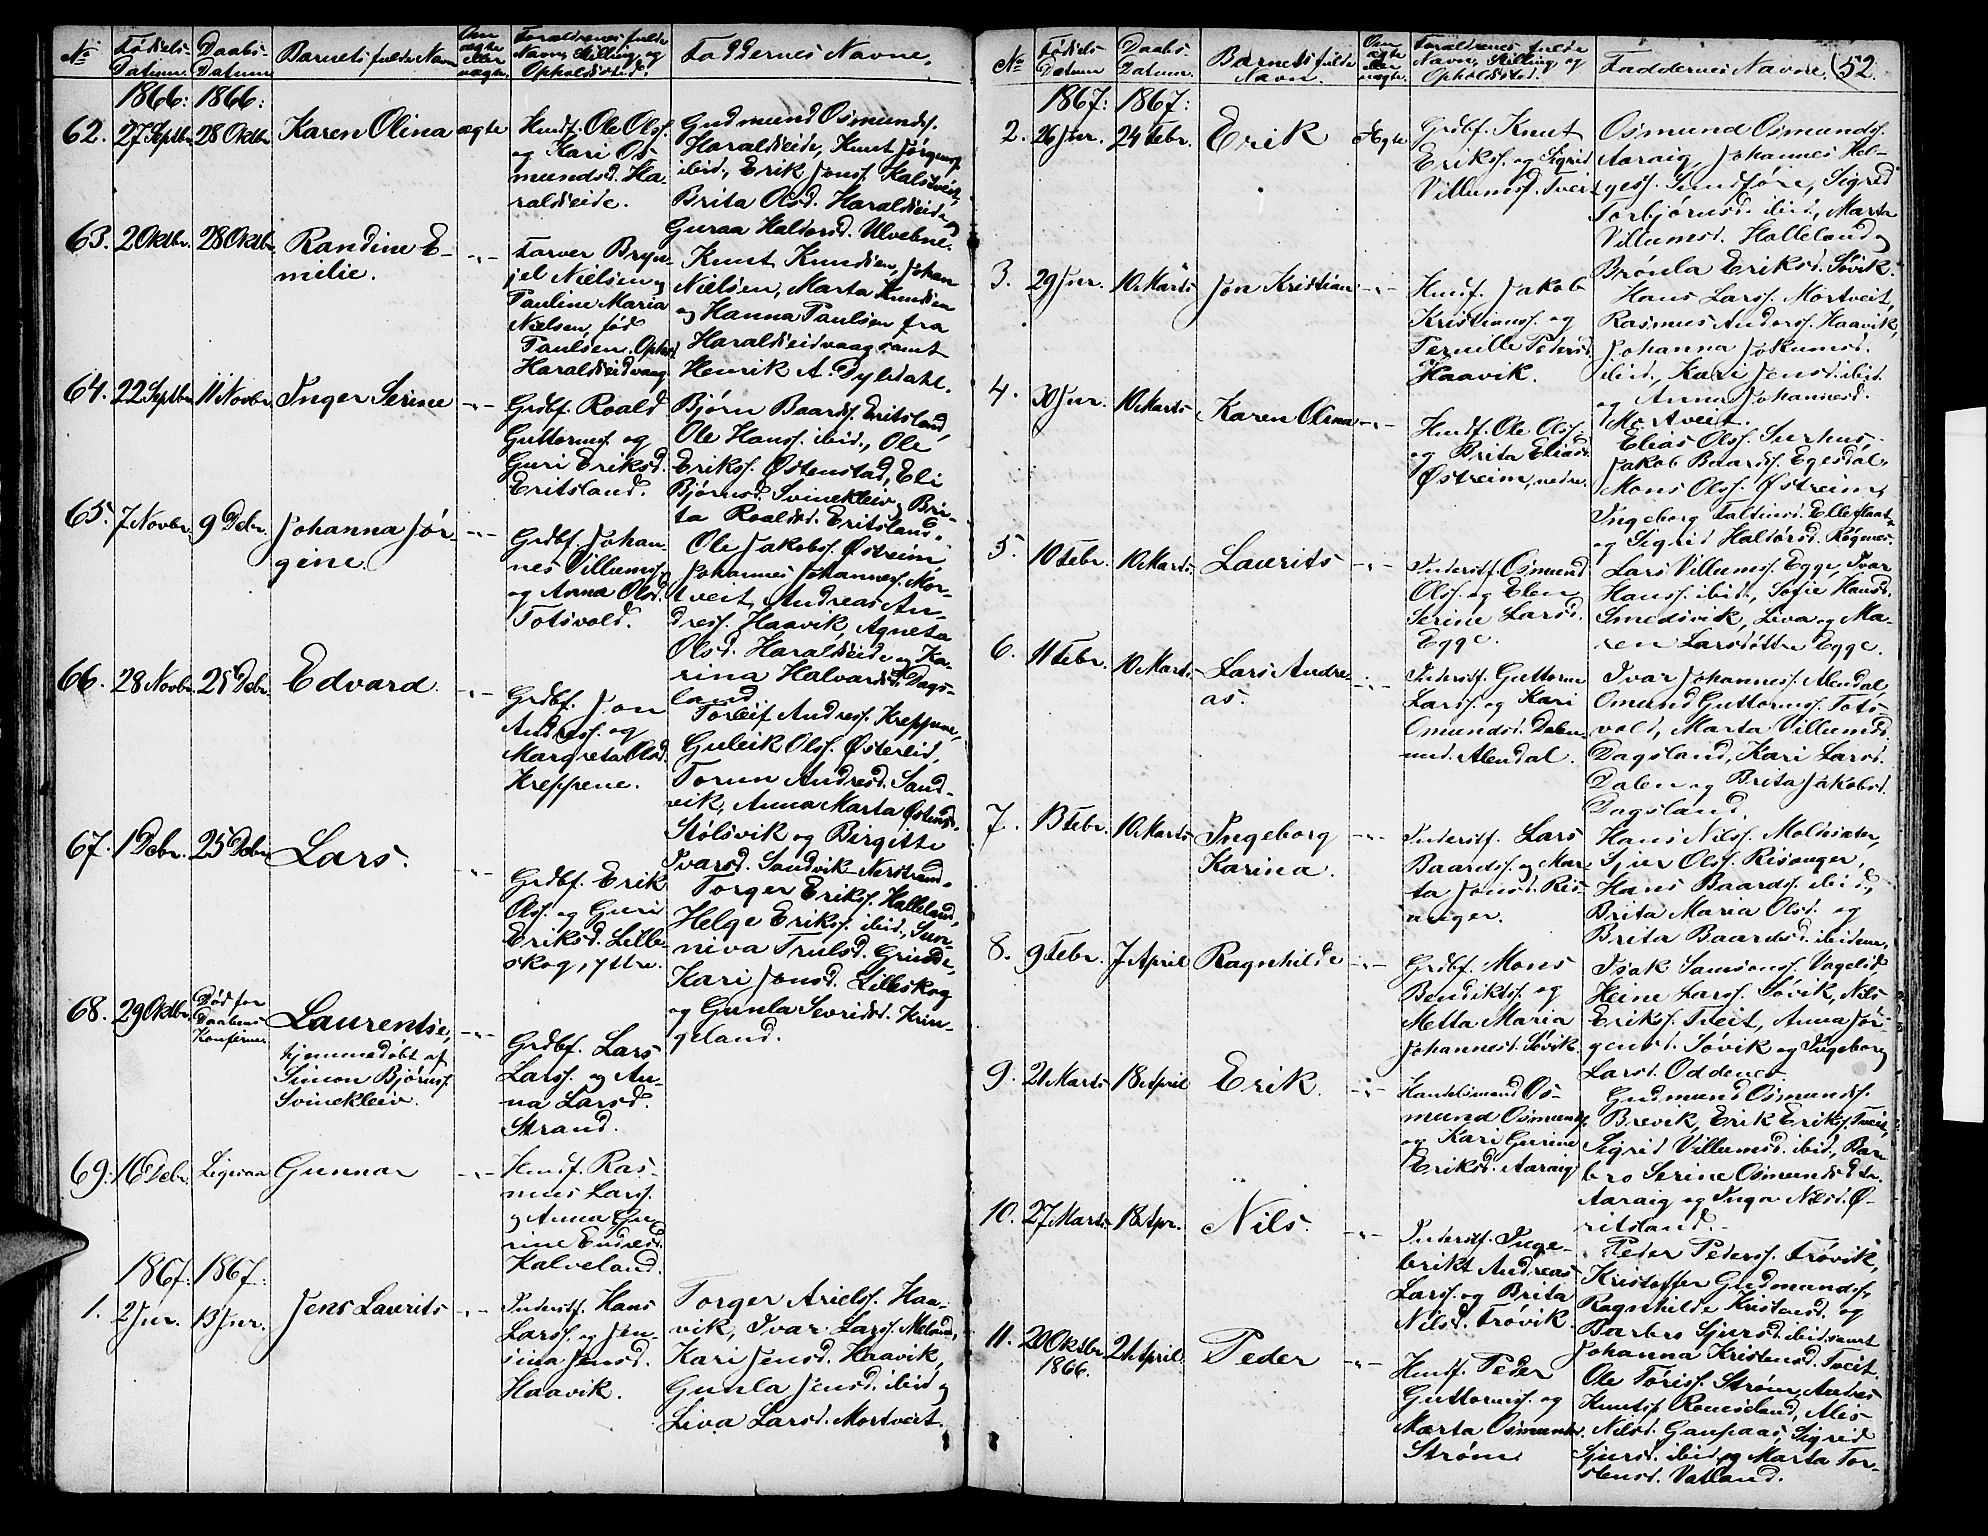 No
Fødsels-
Datum.
Daabs-
Datum
Barnets fulde Navn
Om
ægte
eller
uægte.
Forældrenes fulde
Navn, Stilling og
Opholdssted.
Faddernes Navne.
1866: 1866:
62. 27 Septbr. 28 Oktbr. Karen Olina ægte
Husf. Ole Olss.
og Kari Os-
mundsd. Ha-
raldseide.
Gudmund Osmundss.
Haraldseide, Knut Jørgenss.
ibid., Erik Jonss. Kalstveit,
Brita Olsd. Haraldseide og
Guraa Haldorsd. Ulvebne.
63. 2 Oktbr. 28 Oktbr. Randine E-
milie.
Farver Bryn-
jel Nielsen og
Pauline Maria
Nielsen, fød
Paulsen. Ophold
Haraldseidvaag
Knut Knudsen, Johan
Nielsen, Marta Knudsen
og Hanna Paulsen fra
Haraldseidvaag samt
Henrik A. Dybdahl.
64. 22 Septbr. 11 Novbr. Inger Serine
Grdbf. Roald
Guttormss. og
Guri Eriksd.
Eritsland.
Bjørn Baardss. Eritsland,
Ole Hanss. ibid., Ole
Erikss. Østenstad, Eli
Bjørnsd. Svinekleiv og Bri-
ta Roaldsd. Eritsland.
65. 7 Novbr. 9 Debr. Johanna Jør-
gine.
Grdbf. Johan-
nes Villumss.
og Anna Olsd.
Totsvold.
Ole Jakobss. Østreim,
Johannes Johanness. Mor-
tveit, Andreas An-
dress. Haavik, Agneta
Olsd. Haraldseide og Ka-
rina Halvardsd. Dags-
land.
66. 28 Novbr. 25 Debr. Edvard.
Grdbf. Jon
Andress. og
Margreta Olsd.
Kreppene.
Torleif Andress. Kreppene,
Guleik Olss. Østereid,
Torun Andresd. Sand-
vik, Anna Marta Østensd.
Stølsvik og Birgitte
Ivarsd. Sandvik-Nerstrand.
67. 1 Debr. 25 Debr. Lars.
Grdbf. Erik
Olss. og Guri
Eriksd. Lille-
skog, yttre.
Torger Erikss. Halleland,
Helge Erikss. ibid., Sun-
niva Trulsd. Grinde,
Kari Jonsd. Lilleskog
og Gunla Sevridsd. Krin-
geland.
68. 29 Oktbr. Død før
Daabens
Laurentse,
hjemmedøbt af
Simon Bjørnss.
Svinekleiv.
Grdbf. Lars
Larss. og An-
na Larsd.
Strand.
69. 16 Debr. Ligesaa Gunnar
Husf. Ras-
mus Larss.
og Anna Gu-
rine Endresd.
Kalveland.
1867: 1867:
1. 2 Jnr. 13 Jnr. Jens Laurits
Inderstf. Hans
Larss. og Jen-
sina Jensd.
Haavik.
Torger Arielss. Haa-
vik, Ivar Larss. Meland,
Kari Jensd. Haavik,
Gunla Jensd. ibid og
Liva Larsd. Mortveit.
No
Fødsels
Datum
Daabs-
Datum.
Barnets fulde
Navn.
Om
ægte
eller
uægte.
Forældrenes fulde
Navn, Stilling og
Opholdssted.
Faddernes Navne.
52
1867: 1867:
2. 26 Jnr. 24 Febr. Erik Ægte
Grdbf. Knut
Erikss. og Sigrid
Villumsd. Tveit
Osmund Osmundss.
Aaraig, Johannes Hel-
gess. Sundføre, Sigrid
Torbjørnsd. ibid., Marta
Villumsd. Halleland og
Brønla Eriksd. Søvik.
3. 29 Jnr. 10 Marts Jon Kristian
Husf. Jakob
Kristianss. og
Pernille Pedersd.
Haavik.
Hans Larss. Mortveit,
Rasmus Anderss. Haavik,
Johanna Jokumsd.
ibid., Kari Jensd. ibid.
og Anna Johannesd.
Mortveit.
4. 30 Jnr. 10 Marts Karen Olina
Husf. Ole Olss.
og Brita Eliasd.
Østreim, nedre.
Elias Olss. Surhus,
Jakob Baardss. Egesdal,
Mons Olss. Østreim,
Ingeborg
og Sigrid Haldorsd.
5. 10 Febr. 10 Marts Laurits
Inderstf. Osmund
Olss. og Elen
Serine Larsd.
Egge.
Lars Villumss. Egge, Ivar
Hanss. ibid., Sofie Hansd.
Smedsvik, Liva og Ma-
ren Larsdøttre Egge.
6. 11 Febr. 10 Marts Lars Andre-
as.
Inderstf. Guttorm
Larss. og Kari
Omundsd. Dalen
und. Alendal.
Ivar Johanness. Alendal,
Omund Guttormss. Tots-
vold, Marta Villumsd.
Dagsland, Kari Larsd.
Dalen og Brita Jakobsd.
Dagsland.
7. 13 Febr. 10 Marts Ingeborg
Karina.
Inderstf. Lars
Baardss. og Mar-
ta Jonsd. Ris-
anger.
Hans Nilss. Moldsæter,
Sjur Olss. Risanger,
Hans Baardss. ibid.,
Brita Maria Olsd. og
Brita Baardsd. ibidem.
8. 9 Febr. 7 April Ragnhilde
Grdbf. Mons
Bendikts. og
Metta Maria
Johannesd. Søvik
Isak Samsonss. Vågslid
Heine Larss. Søvik, Nils
Erikss. Tveit, Anna Jør-
gensd. Søvik og Ingeborg
Larsd. Oddenes.
9. 21 Marts 18 April Erik.
Handelsmand Os-
mund Osmunds.
og Kari Gurine
Eriksd. Aaraig
Gudmund Osmundss.
Brevik, Erik Erikss. Tveit,
Sigrid Villumsd. ibid., Bar-
bro Serine Osmundsdtr.
Aaraig og Inga Nilsd. Ø-
ritsland.
10. 27 Marts 18 Apr. Nils.
Inderstf. Inge-
brikt Andreas
Larss. og Brita
Nilsd. Frøvik.
Peder Pederss. Frøvik,
Kristoffer Gudmundss.
Ragnhilde Kristensd. og
Barbro Sjursd. ibid. samt
Johanna Kristensd. Tveit.
11. 20 Oktbr. 21 April. Peder
1866.
Husf. Peder
Guttormss. og
Marta Osmundsd.
Strøm
Ole Toriss. Strøm, Andres
Knutss. Romseland, Alis
Nilsd. Gaupaas, Sigrid
Sjursd. ibid og Marta Tor-
stensd. Vatland.